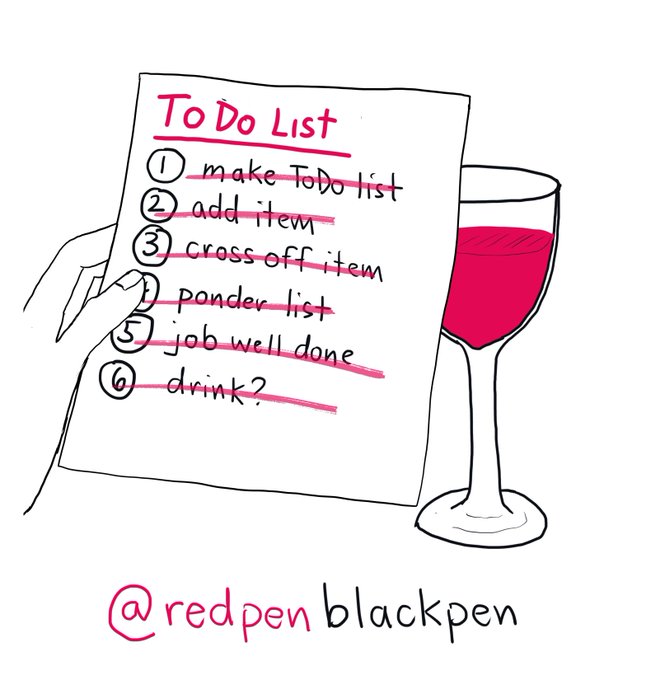 ToDo List
1 make ToDo list
2 add item
3 cross off item
ponder list
5 job well done
6 drink?
@redpenblackpen